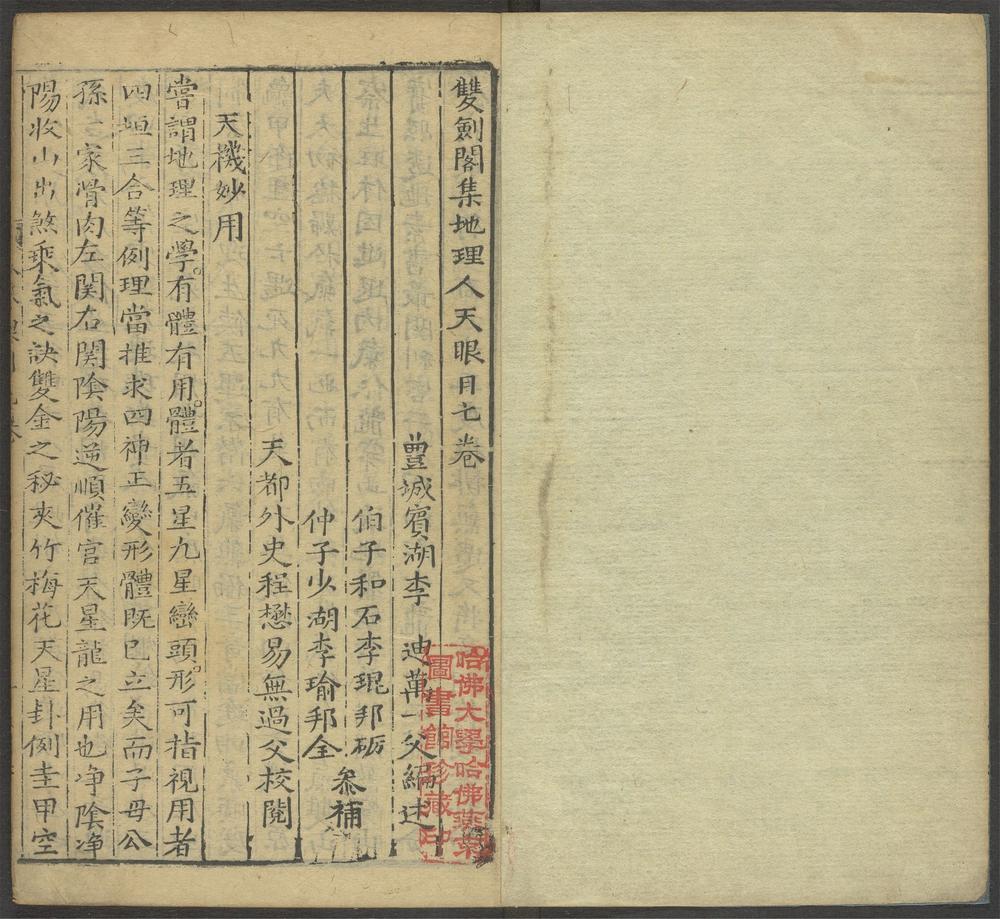 雙劍閣集地理人天眼目七卷
豊城賓湖李 迪萬一父編述
伯子和石李琨邦砺
仲子少湖李瑜邦全
叅補
天都外史程懋易無過父校閱
天機妙用
嘗謂地理之學。有體有用。體者五星九星巒頭。形可指視用者
四垣三合等例理當推求四神正變形體旣已立矣而子母公
孫之家骨肉左関右関陰陽逆順催官天星龍之用也净陰净
陽收山出煞乘氣之訣雙金之秘夾竹梅花天星卦例圭甲空
哈佛大學哈佛燕京
圖書館珍藏印